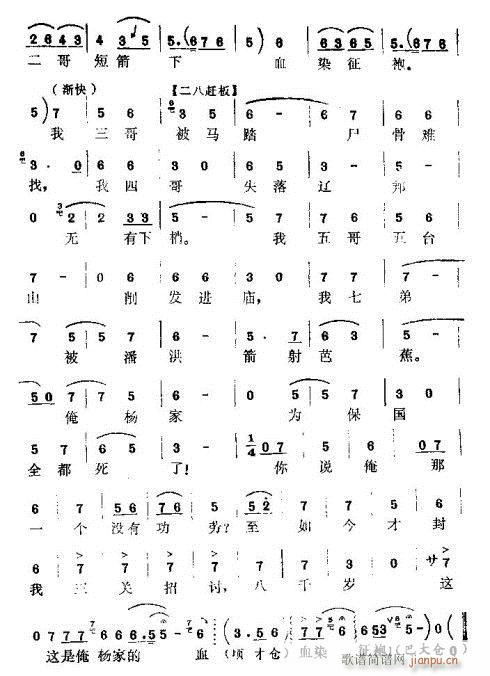 2 6 4 3 4 3 5 5·(6 7 6 5) 6 6 3 6 5·(6 7 6
二哥 短箭 下 血 染征 袍。
(渐快) 【二八赶板】
5) 7 5 6 5 5 6 -
我 三哥 被马 踏 尸 骨难
3· 0 6 6 3 0 6 5 5 -
找， 我四 哥 失落 辽 邦
0 2 2 3 3 5 - 5 7 7 6
无 有下 梢。 我 五哥 五台
7 - 0 6 6 6 3 0 6 7 7 -
山 削 发进 庙， 我七 弟
7 5 5 6 - 5· 7 6 3 6 -
被 潘 洪 箭 射 芭 蕉。
5 0 7 7 - 0 7 6 5
俺 杨家 为保 国
5 7 6 5 3 - 1/4 0 7 5 6 0 7
全都 死 了！ 你 说 俺 那
6 7 5 6 7 6 5 5 2 6 7 7 5
一 个 没有 功 劳？ 至 如 今 才 封
6 7 7 7 7 7 6 0 サ 7
我 三 关 招 讨， 八 千 岁 这
0 7 7 7 6 6 6·5 5 -
这是俺 杨家的 血 (顷 才 仓) 血染 征袍！(巴 大 仓 0)
歌谱简谱网
jianpu.cn